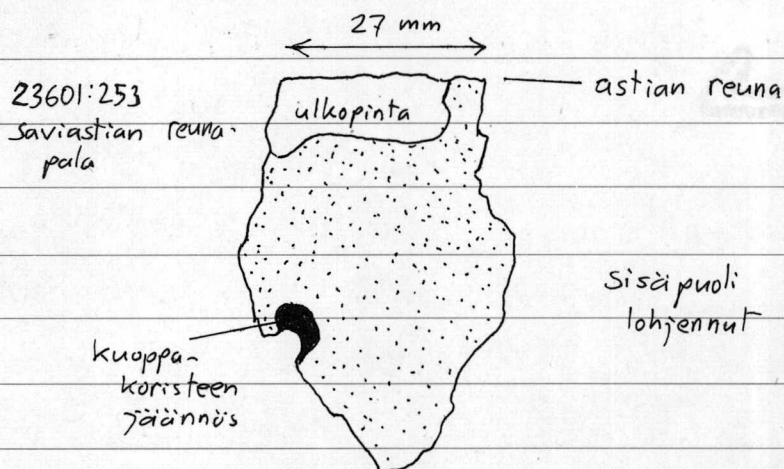 27 mm
23601:253
saviastian reuna-
pala
ulkopinta
astian reuna
Sisäpuoli
lohjennut
kuoppa-
koristeen
jäännös